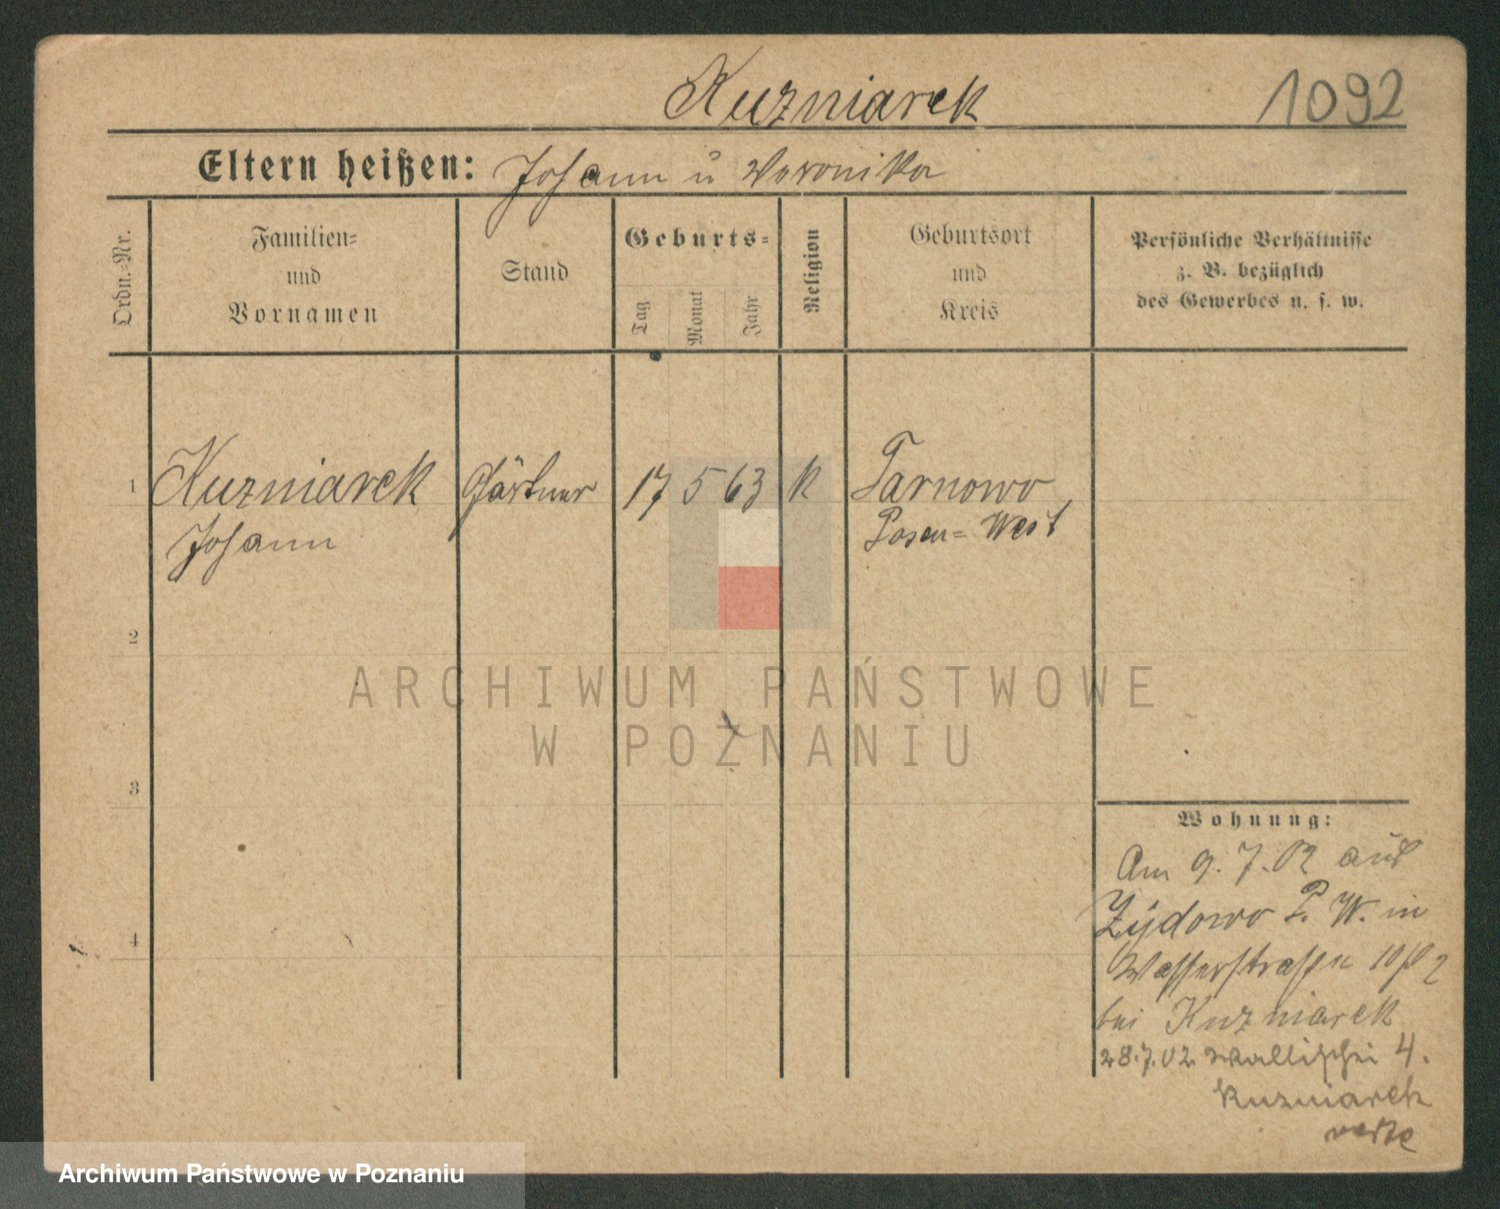 Kuzniarek 1092
Eltern heißen: Johann u Veronika
Ordn.=Nr.
Familien=
und
Vornamen
Stand
Geburts=
Tag
Monat
Jahr
Religion
Geburtsort
und
Kreis
Persönliche Verhältnisse
z. B. bezüglich
des Gewerbes u. s. w.
1 Kuzniarek Gärtner 17 5 63 k Tarnowo
Johann Posen=West
2
ARCHIWUM PAŃSTWOWE
W POZNANIU
3
Wohnung:
Am 9. 7. 02 aus
Zÿdowo P. W. in
Wasserstraße
bei Kuzniarek
28.7.02 Wallischei 4.
Kuzniarek
4
Archiwum Państwowe w Poznaniu